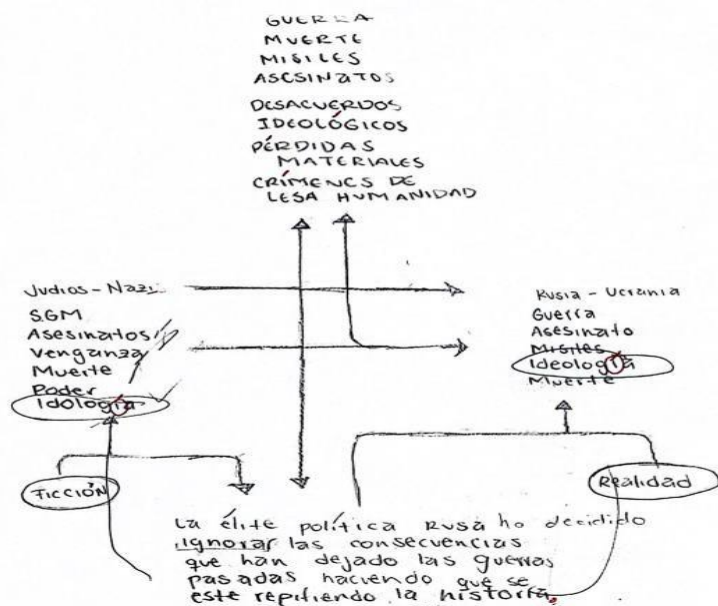 GUERRA
MUERTE
MISILES
ASESINATOS
DESACUERDOS
IDEOLÓGICOS
PÉRDIDAS
MATERIALES
CRÍMENES DE
LESA HUMANIDAD
Judios - Nazi
SGM
Asesinatos
Venganza
Muerte
Poder
Idología
FICCIÓN
Rusia - Ucrania
Guerra
Asesinato
Misiles
Ideología
Muerte
Realidad
La élite política Rusa ha decidido
ignorar las consecuencias
que han dejado las guerras
pasadas haciendo que se
este repitiendo la historia.